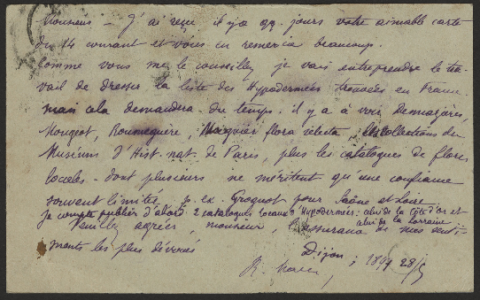 Monsieur — J'ai reçu il y a qq. jours votre aimable carte
du 14 courant et vous en remercie beaucoup.
Comme vous me le conseillez, je vais entreprendre le tra-
vail de dresser la liste des Hypodermées trouvées en France
mais cela demandera du temps. il y a à voir Desmazières,
Mougeot, Roumeguère, flora selecta, les collections du
Muséum d'Hist. nat. de Paris, plus les catalogues de flores
locales dont plusieurs ne méritent qu'une confiance
souvent limitée, p. ex. Grognot pour Saône et Loire.
je compte publier d'abord 2 catalogues locaux d'Hypodermées : celui de la Côte d'or et
celui de la Lorraine
Veuillez agréer, monsieur, l'assurance de mes senti-
ments les plus dévoués
Dijon, 28/5